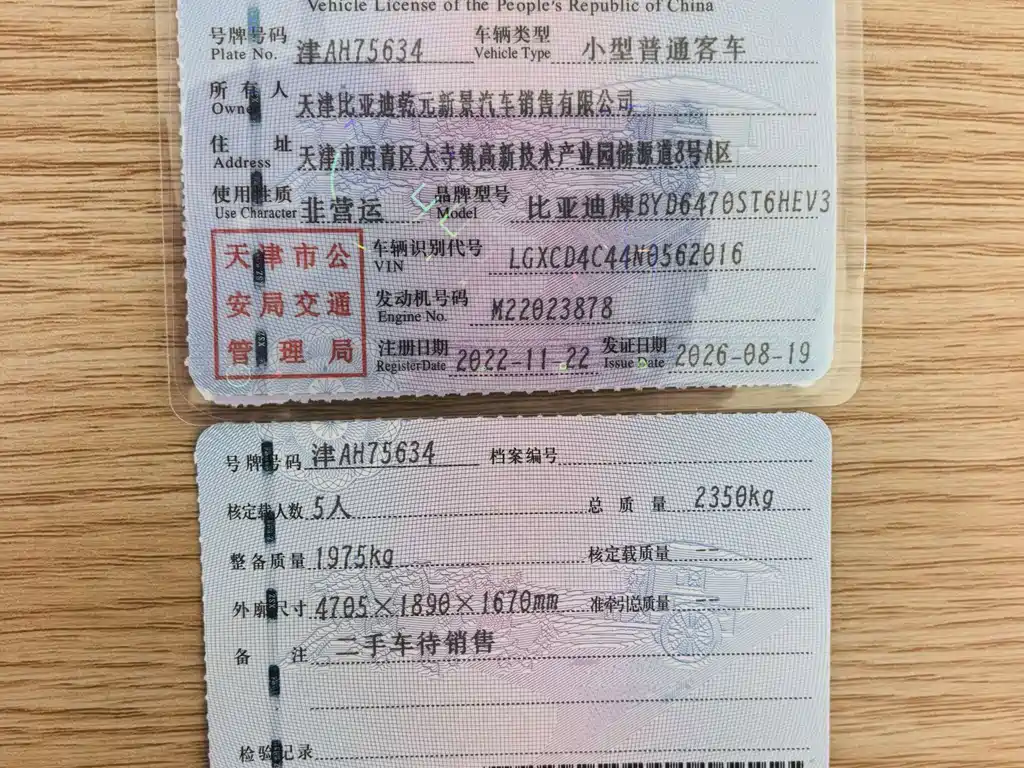 Vehicle License of the People's Republic of China
号牌号码 Plate No. 津AH75634 车辆类型 Vehicle Type 小型普通客车
所有人 Owner 天津比亚迪乾元新景汽车销售有限公司
住址 Address 天津市西青区大寺镇高新技术产业园储源道8号A区
使用性质 Use Character 非营运 品牌型号 Model 比亚迪牌BYD6470ST6HEV3
天津市公安局交通管理局
车辆识别代号 VIN LGXCD4C44N0562016
发动机号码 Engine No. M22023878
注册日期 Register Date 2022-11-22 发证日期 Issue Date 2026-08-19
号牌号码 津AH75634 档案编号
核定载人数 5人 总质量 2350kg
整备质量 1975kg 核定载质量 --
外廓尺寸 4705×1890×1670mm 准牵引总质量 --
备注 二手车待销售
检验记录